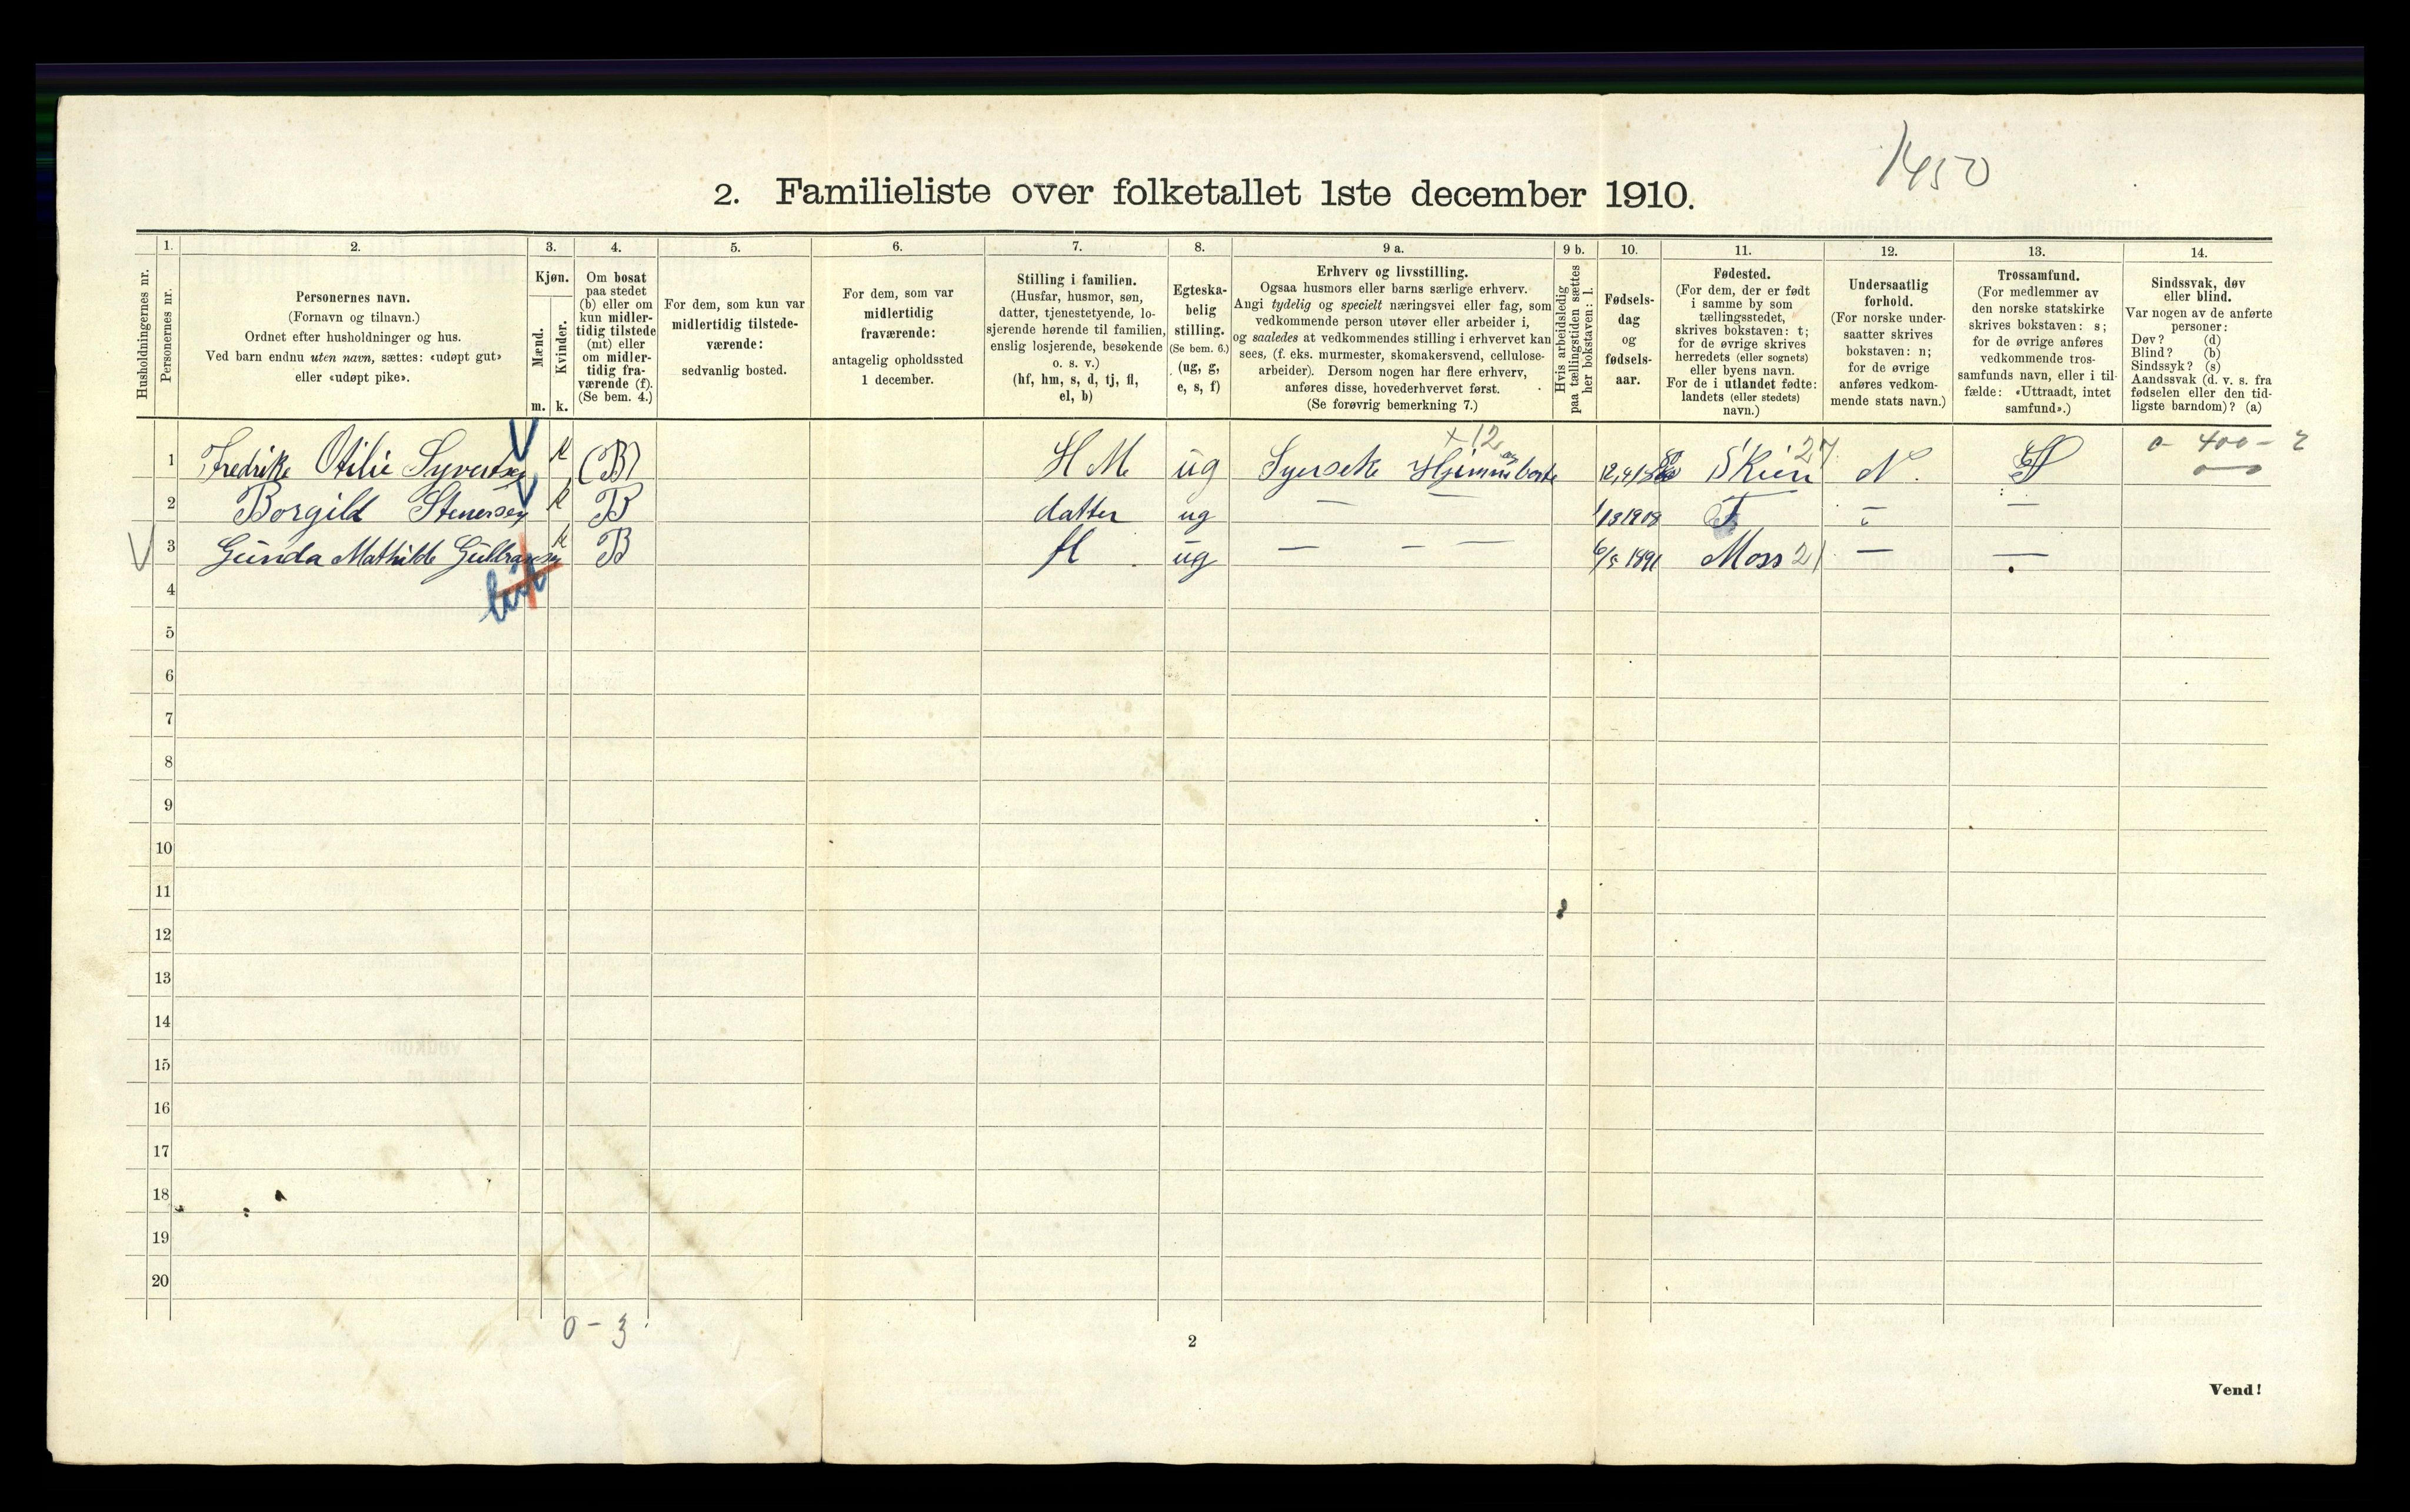 1450
2. Familieliste over folketallet 1ste december 1910.
Husholdningernes nr.
1.
Personernes nr.
2.
Personernes navn.
(Fornavn og tilnavn.)
Ordnet efter husholdninger og hus.
Ved barn endnu uten navn, sættes: «udøpt gut»
eller «udøpt pike».
3.
Kjøn.
Mænd.
Kvinder.
m. k.
4.
Om bosat
paa stedet
(b) eller om
kun midler-
tidig tilstede
(mt) eller
om midler-
tidig fra-
værende (f).
(Se bem. 4.)
5.
For dem, som kun var
midlertidig tilstede-
værende:
sedvanlig bosted.
6.
For dem, som var
midlertidig
fraværende:
antagelig opholdssted
1 december.
7.
Stilling i familien.
(Husfar, husmor, søn,
datter, tjenestetyende, lo-
sjerende hørende til familien,
enslig losjerende, besøkende
o. s. v.)
(hf, hm, s, d, tj, fl,
el, b)
8.
Egteska-
belig
stilling.
(Se bem. 6.)
(ug, g,
e, s, f)
9 a.
Erhverv og livsstilling.
Ogsaa husmors eller barns særlige erhverv.
Angi tydelig og specielt næringsvei eller fag, som
vedkommende person utøver eller arbeider i,
og saaledes at vedkommendes stilling i erhvervet kan
sees, (f. eks. murmester, skomakersvend, cellulose-
arbeider). Dersom nogen har flere erhverv,
anføres disse, hovederhvervet først.
(Se forøvrig bemerkning 7.)
9 b.
Hvis arbeidsledig
paa tællingstiden sættes
her bokstaven: l.
10.
Fødsels-
dag
og
fødsels-
aar.
11.
Fødested.
(For dem, der er født
i samme by som
tællingsstedet,
skrives bokstaven: t;
for de øvrige skrives
herredets (eller sognets)
eller byens navn.
For de i utlandet fødte:
landets (eller stedets)
navn.)
12.
Undersaatlig
forhold.
(For norske under-
saatter skrives
bokstaven: n;
for de øvrige
anføres vedkom-
mende stats navn.)
13.
Trossamfund.
(For medlemmer av
den norske statskirke
skrives bokstaven: s;
for de øvrige anføres
vedkommende tros-
samfunds navn, eller i til-
fælde: «Uttraadt, intet
samfund».)
14.
Sindssvak, døv
eller blind.
Var nogen av de anførte
personer:
Døv? (d)
Blind? (b)
Sindssyk? (s)
Aandssvak (d. v. s. fra
fødselen eller den tid-
ligste barndom)? (a)
1 Fredrike Otilie Syvertsen k (B) H M ug x 12 Skien 27 N. S 0 - 400 - 2
2 Borgild Stenersen k B datter ug — — 1908 T — —
3 Gunda Mathilde Gulbransen k B fl ug — — — 6/5 1891 Moss 21 — —
4
5
6
7
8
9
10
11
12
13
14
15
16
17
18
19
20
0 - 3
2
Vend!